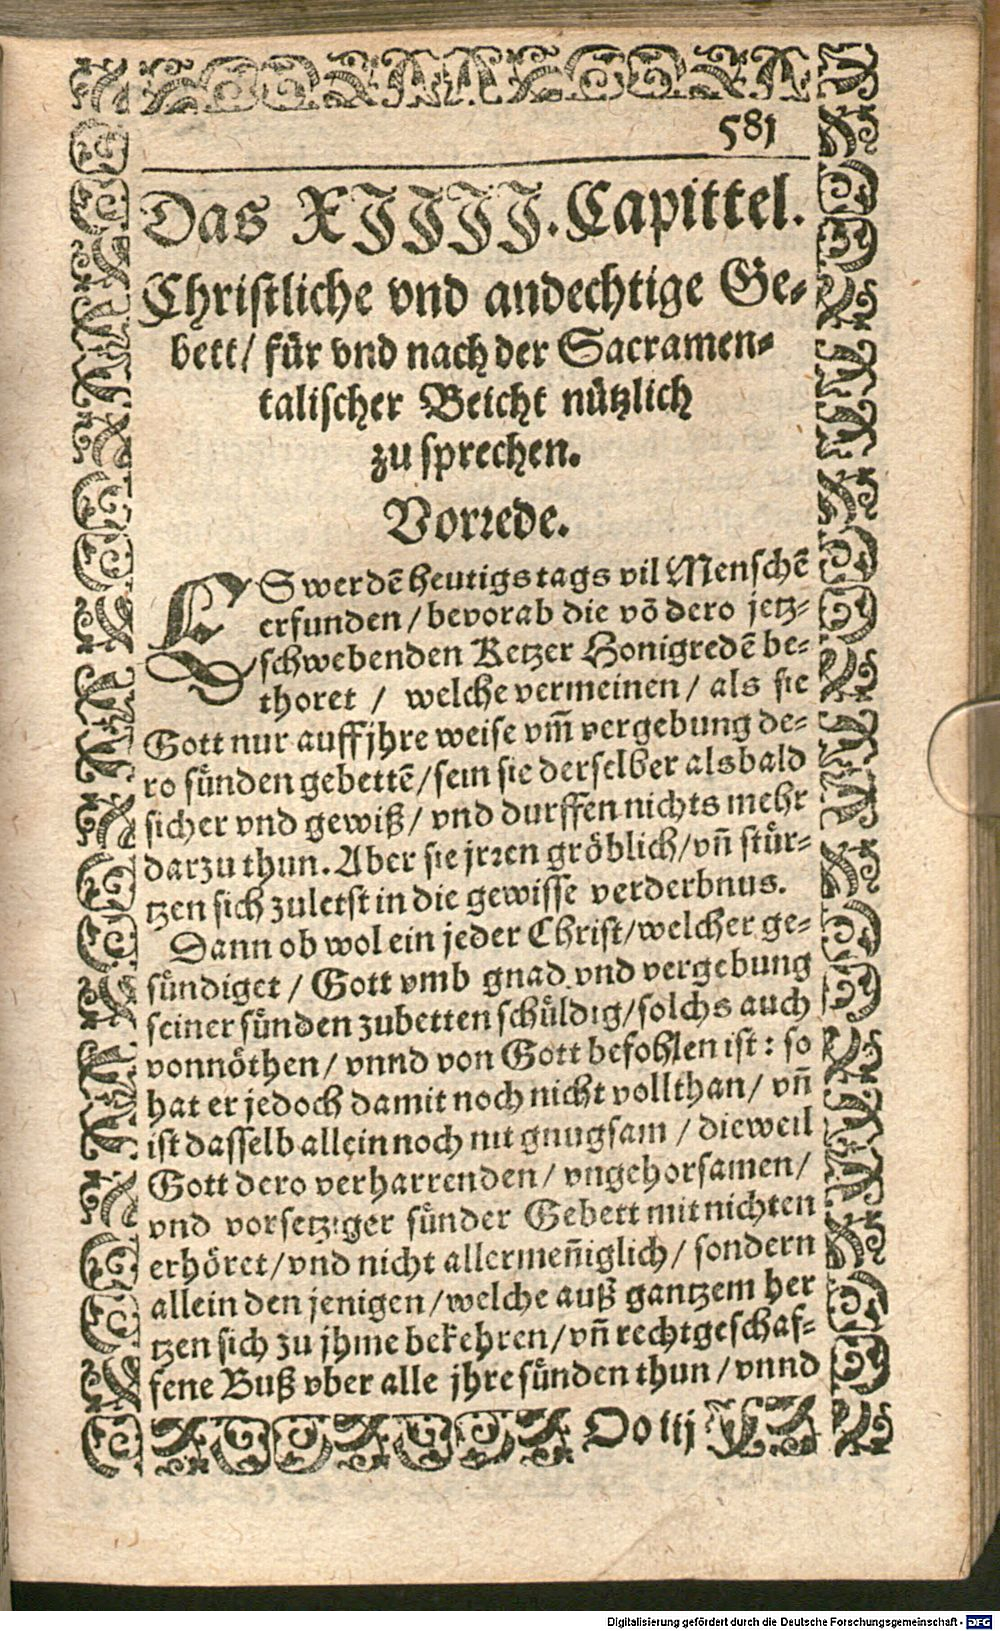 581
Das XIIII. Capittel.
Christliche vnd andechtige Ge-
bett/ für vnd nach der Sacramen-
talischer Beicht nützlich
zu sprechen.
Vorrede.
ES werdē heutigs tags vil Menschē
erfunden / bevorab die vō dero jetz-
schwebenden Ketzer Honigredē be-
thoret / welche vermeinen / als sie
Gott nur auff jhre weise vm̃ vergebung de-
ro sünden gebettē/sein sie derselber alsbald
sicher vnd gewiß/ vnd durffen nichts mehr
darzu thun. Aber sie jrren gröblich/vñ stür-
tzen sich zuletst in die gewisse verderbnus.
Dann ob wol ein jeder Christ/welcher ge-
sündiget / Gott vmb gnad vnd vergebung
seiner sünden zubetten schüldig/solchs auch
vonnöthen / vnnd von Gott befohlen ist: so
hat er jedoch damit noch nicht vollthan/ vñ
ist dasselb allein noch nit gnugsam / dieweil
Gott dero verharrenden / vngehorsamen/
vnd vorsetziger sünder Gebett mit nichten
erhöret/vnd nicht allermeñiglich/ sondern
allein den jenigen /welche auß gantzem her
tzen sich zu jhme bekehren/vñ rechtgeschaf-
fene Buß vber alle jhre sünden thun/ vnnd
Oo iij
Digitalisierung gefördert durch die Deutsche Forschungsgemeinschaft - DFG